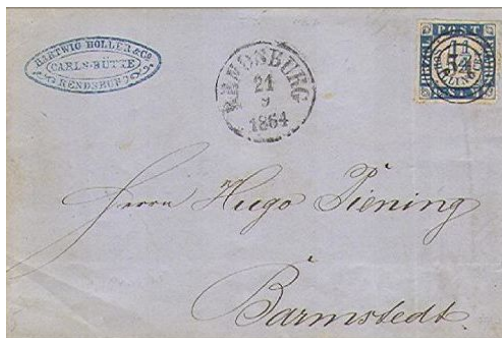 HARTWIG HOLLER & Co.
CARLS-HÜTTE
RENDSBURG
RENDSBURG
21
9
1864
POST
Herrn Hugo Piening
Barmstedt.